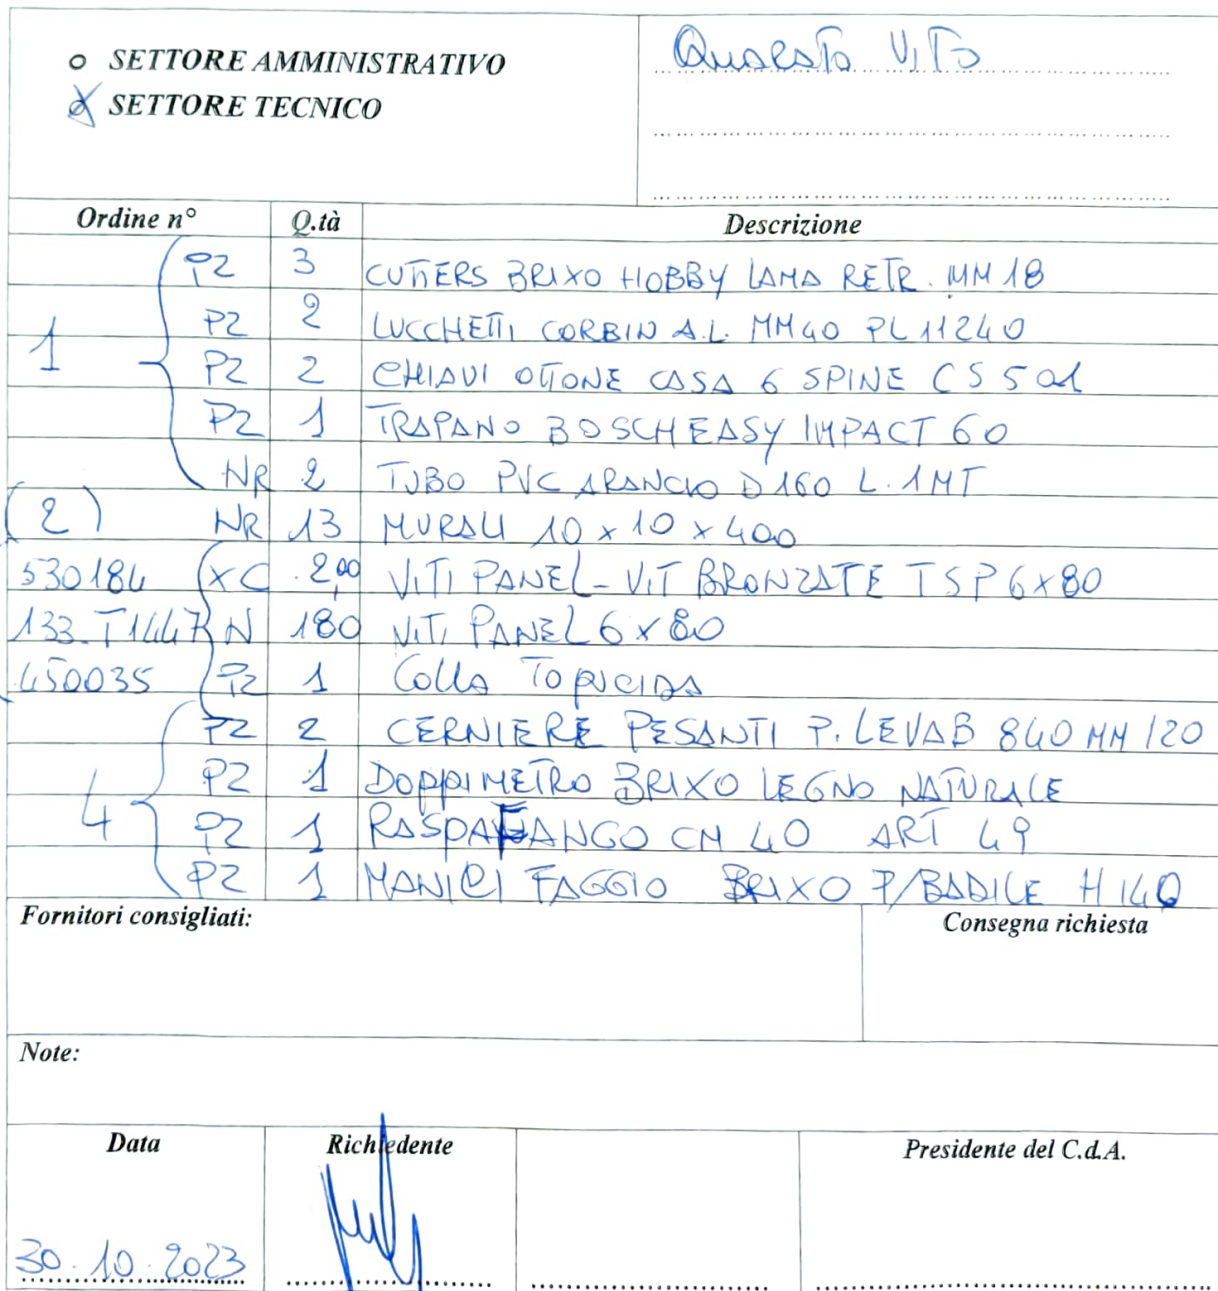 o SETTORE AMMINISTRATIVO
X SETTORE TECNICO
Quaresta Vito
Ordine n° Q.tà Descrizione
PZ 3 CUTTERS BRIXO HOBBY LAMA RETR. MM 18
PZ 2 LUCCHETTI CORBIN A.L. MM40 PL 11240
1 PZ 2 CHIAVI OTTONE CASA 6 SPINE CS501
PZ 1 TRAPANO BOSCH EASY IMPACT 60
NR 2 TUBO PVC ARANCIO D160 L. 1MT
(2) NR 13 MURALI 10 x 10 x 400
530184 XC 2,00 VITI PANEL-VIT BRONZATE TSP 6x80
133.T1447 N 180 VITI PANEL 6 x 80
450035 PZ 1 Colla Topicida
PZ 2 CERNIERE PESANTI P. LEVAB 840 MM 120
PZ 1 DOPPIMETRO BRIXO LEGNO NATURALE
4 PZ 1 RASPAFANGO CM 40 ART 49
PZ 1 MANICI FAGGIO BRIXO P/BADILE H 140
Fornitori consigliati: Consegna richiesta
Note:
Data Richiedente Presidente del C.d.A.
30.10.2023